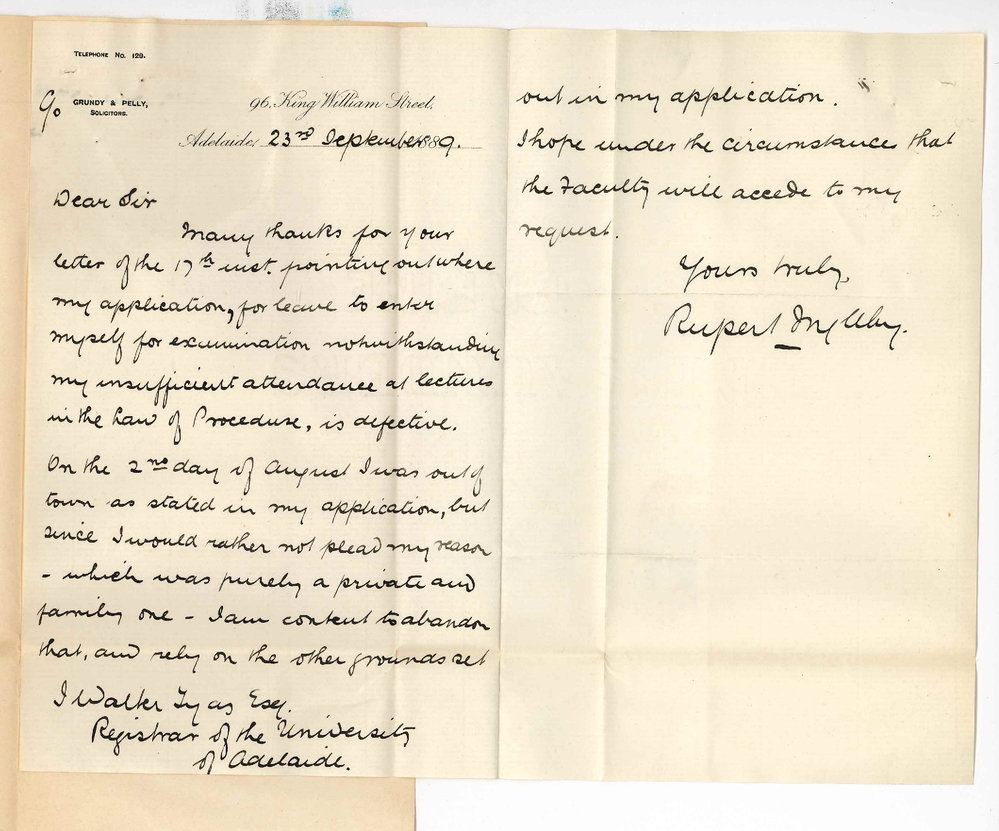 TELEPHONE No. 129.
C/o GRUNDY & PELLY,
SOLICITORS.
96, King William Street,
Adelaide, 23rd September 1889.
Dear Sir
Many thanks for your
letter of the 17th inst. pointing out where
my application, for leave to enter
myself for examination notwithstanding
my insufficient attendance at lectures
in the Law of Procedure, is defective.
On the 2nd day of August I was out of
town as stated in my application, but
since I would rather not plead my reason
- which was purely a private and
family one - I am content to abandon
that, and rely on the other grounds set
J Walter Tyas Esq.
Registrar of the University
of Adelaide.
out in my application.
I hope under the circumstances that
the Faculty will accede to my
request.
Yours truly,
Rupert Ingleby.